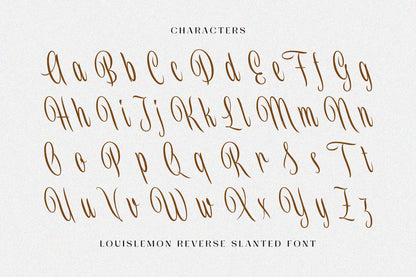 CHARACTERS
Aa Bb Cc Dd Ee Ff Gg
Hh Ii Jj Kk Ll Mm Nn
Oo Pp Qq Rr Ss Tt
Uu Vv Ww Xx Yy Zz
LOUISLEMON REVERSE SLANTED FONT